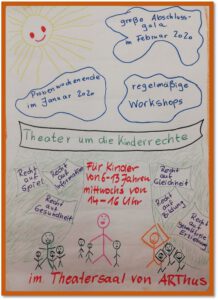 große Abschluss-
gala
im Februar 2020
Probenwochenende
im Januar 2020
regelmäßige
Workshops
Theater um die Kinderrechte
Recht
auf
Spiel
Recht
auf
Information
Recht
auf
Gesundheit
Für Kinder
von 6-13 Jahren
mittwochs von
14-16 Uhr
Recht
auf
Gleichheit
Recht
auf
Bildung
Recht
auf
gewaltfreie
Erziehung
im Theatersaal von ARThus